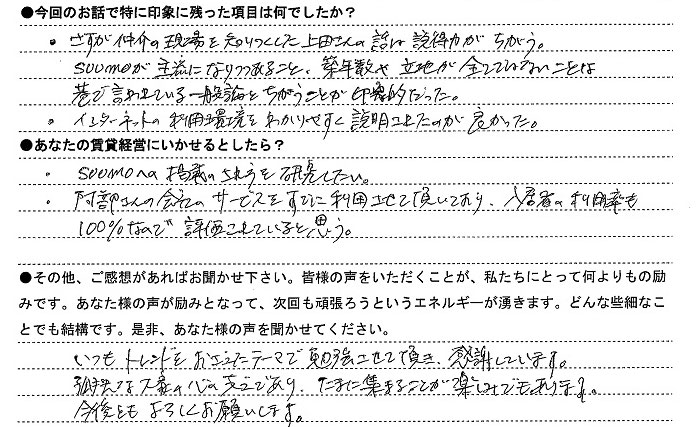 ●今回のお話で特に印象に残った項目は何でしたか?
・さすが仲介の現場を知りつくした上田さんの話は説得力がちがう。
SUUMOが主流になりつつあること、築年数や立地が全てではないことは
巷で言われている一般論とちがうことが印象的だった。
・インターネットの利用環境をわかりやすく説明されたのが良かった。
●あなたの賃貸経営にいかせるとしたら?
・SUUMOへの掲載のされ方を研究したい。
・阿部さんの会社のサービスをすでに利用させて頂いており、入居者の利用率も
100%なので評価されていると思う。
●その他、ご感想があればお聞かせ下さい。皆様の声をいただくことが、私たちにとって何よりもの励
みです。あなた様の声が励みとなって、次回も頑張ろうというエネルギーが湧きます。どんな些細なこ
とでも結構です。是非、あなた様の声を聞かせてください。
いつもトレンドをおさえたテーマで勉強させて頂き、感謝しています。
孤独な大家の心の支えであり、たまに集まることが楽しみでもあります。
今後ともよろしくお願いします。